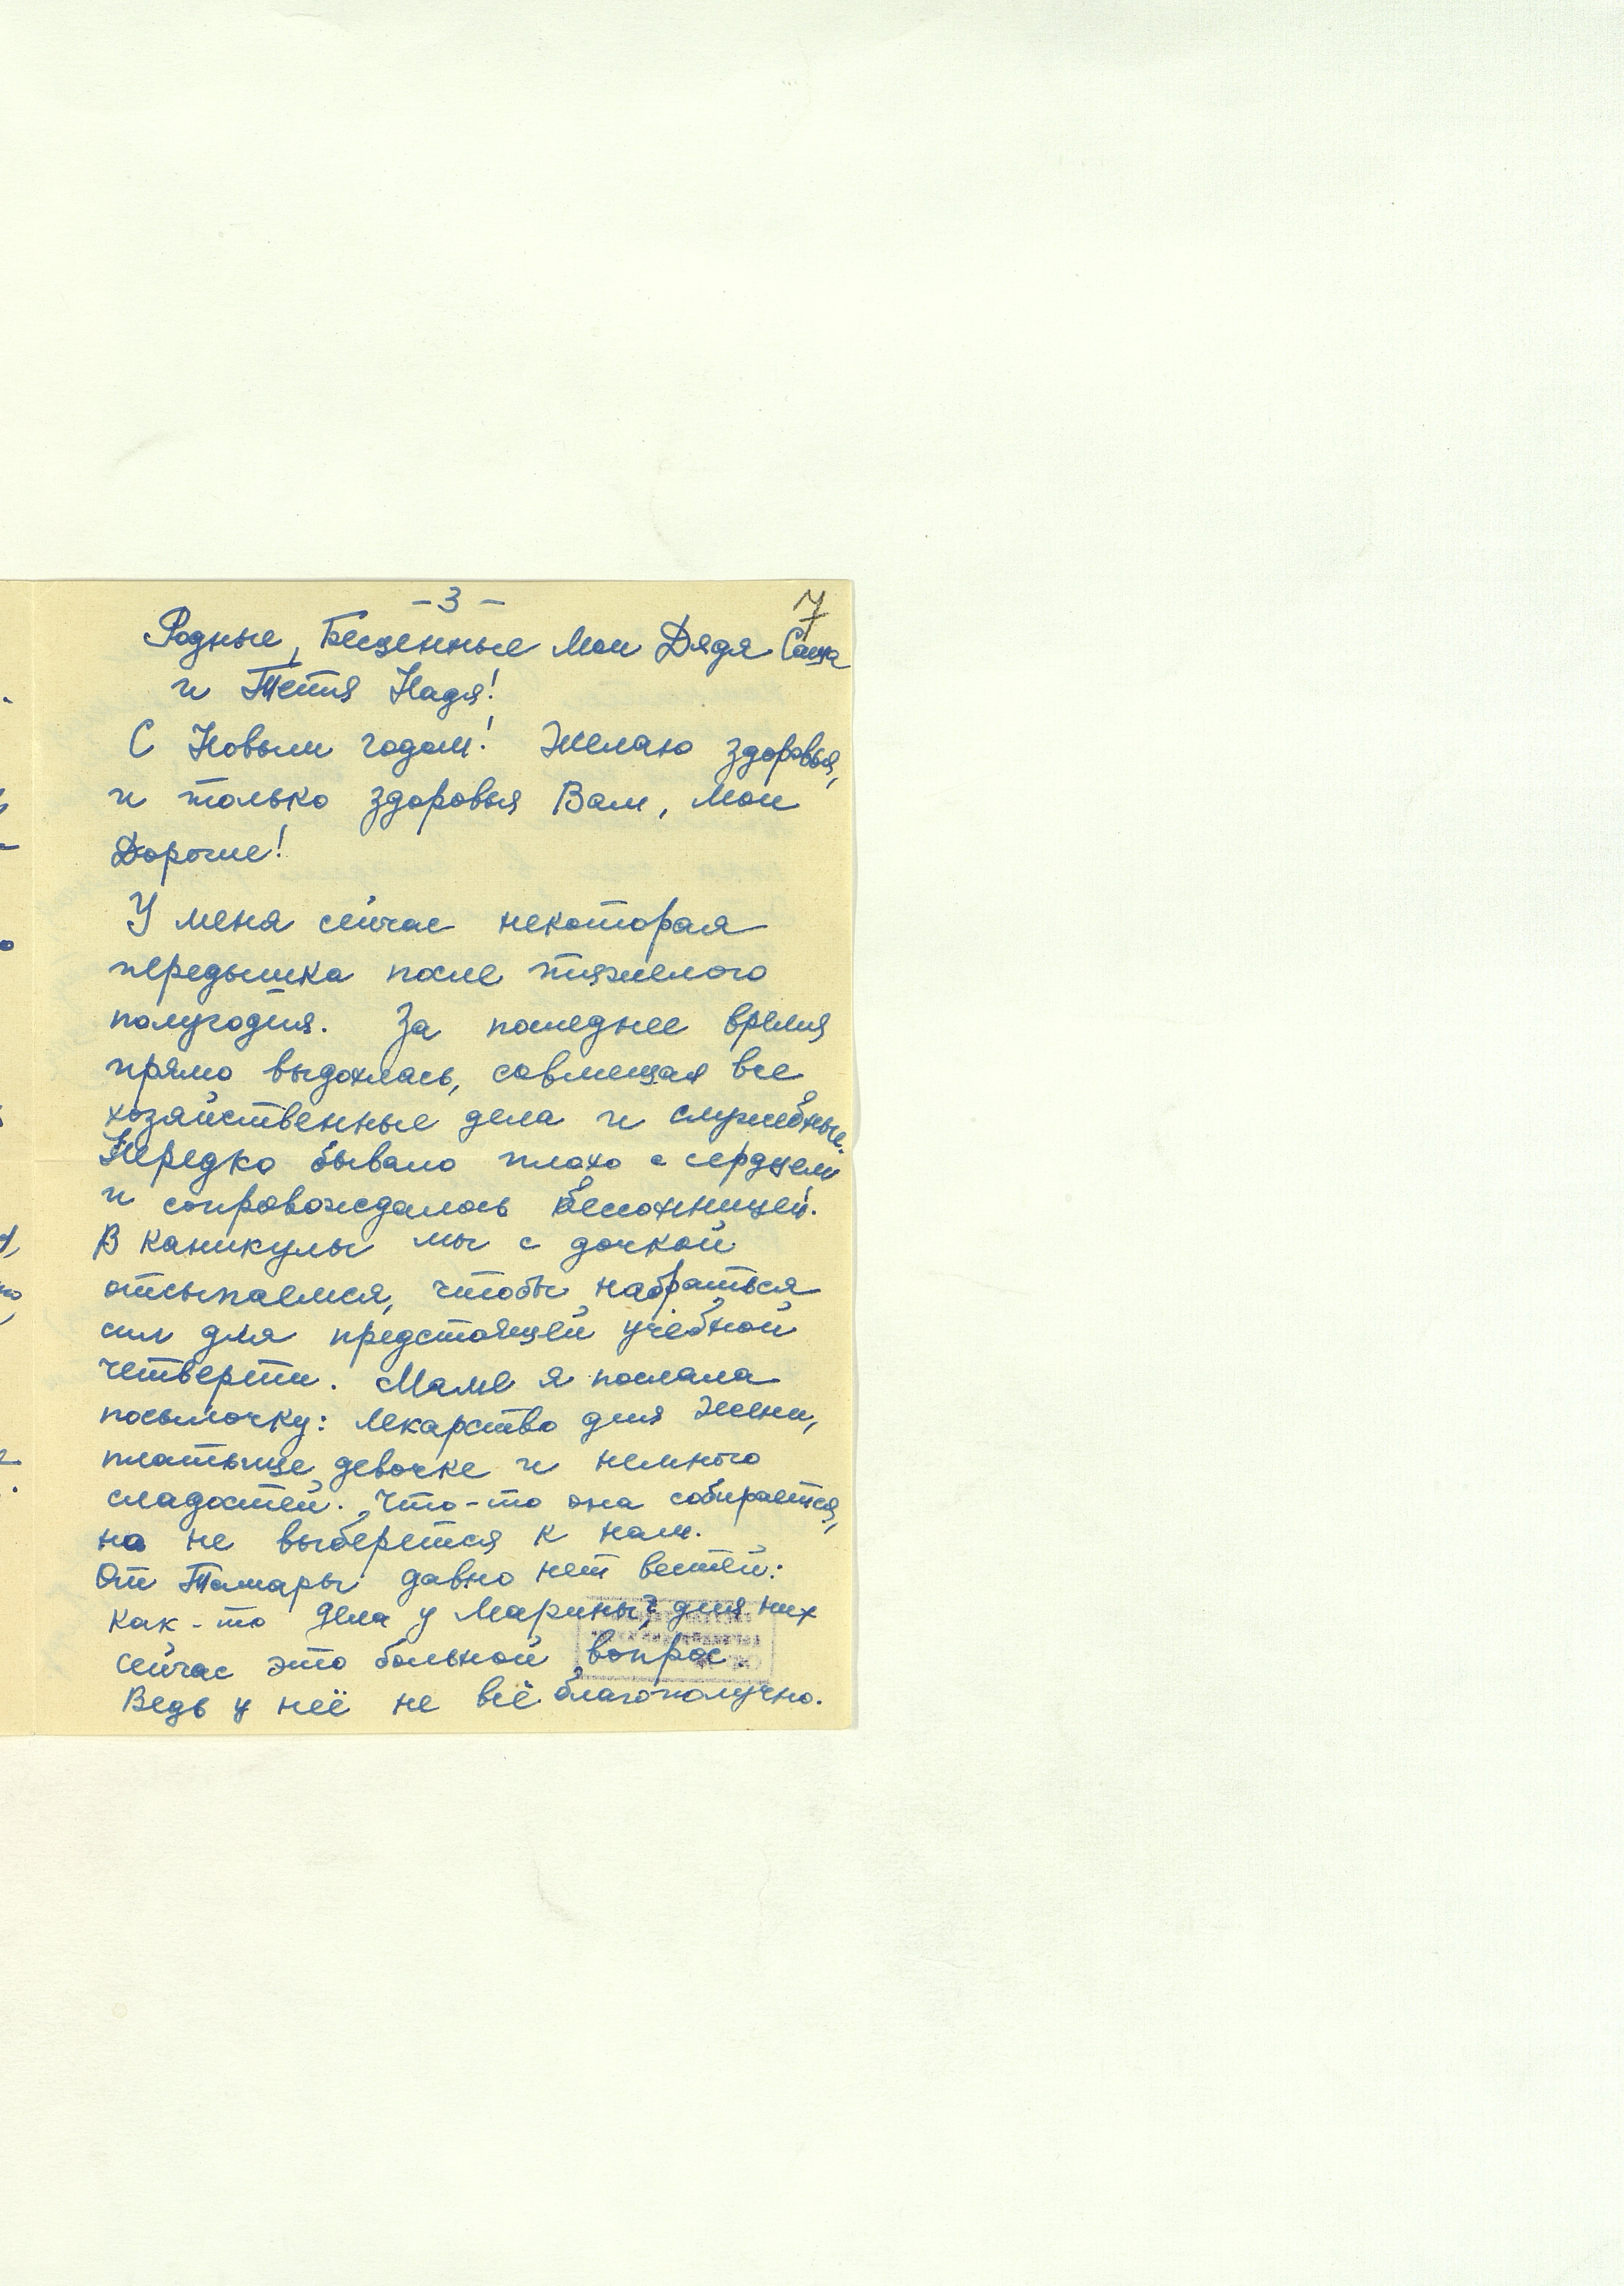 - 3 -
7
Родные, Бесценные Мои Дядя Саша
и Тётя Надя!
С Новым годом! Желаю здоровья,
и только здоровья Вам, Мои
Дорогие!
У меня сейчас некоторая
передышка после тяжелого
полугодия. За последнее время
прямо выдохлась, совмещая все
хозяйственные дела и служебные.
Нередко бывало плохо с сердцем
и сопровождалось бессонницей.
В каникулы мы с дочкой
отсыпаемся, чтобы набраться
сил для предстоящей учебной
четверти. Маме я послала
посылочку: лекарство для Жени,
платьице девочке и немного
сладостей. Что-то она собирается,
но не выберется к нам.
От Тамары давно нет вестей:
Как-то дела у Марины? для них
сейчас это больной вопрос.
Ведь у неё не всё благополучно.